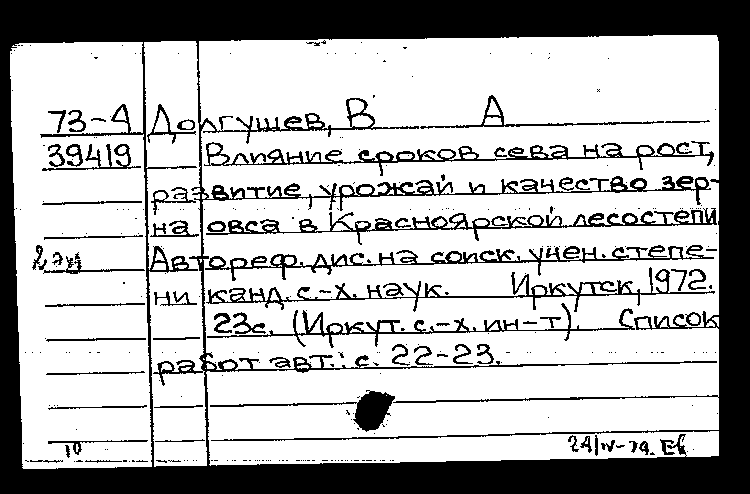 73-4 Долгушев, В А
39419 Влияние сроков сева на рост,
развитие, урожай и качество зер-
на овса в Красноярской лесостепи
2 эк Автореф. дис. на соиск. учен. степе-
ни канд. с.-х. наук. Иркутск, 1972.
23с. (Иркут. с.-х. ин-т). Список
работ авт.: с. 22-23.
10